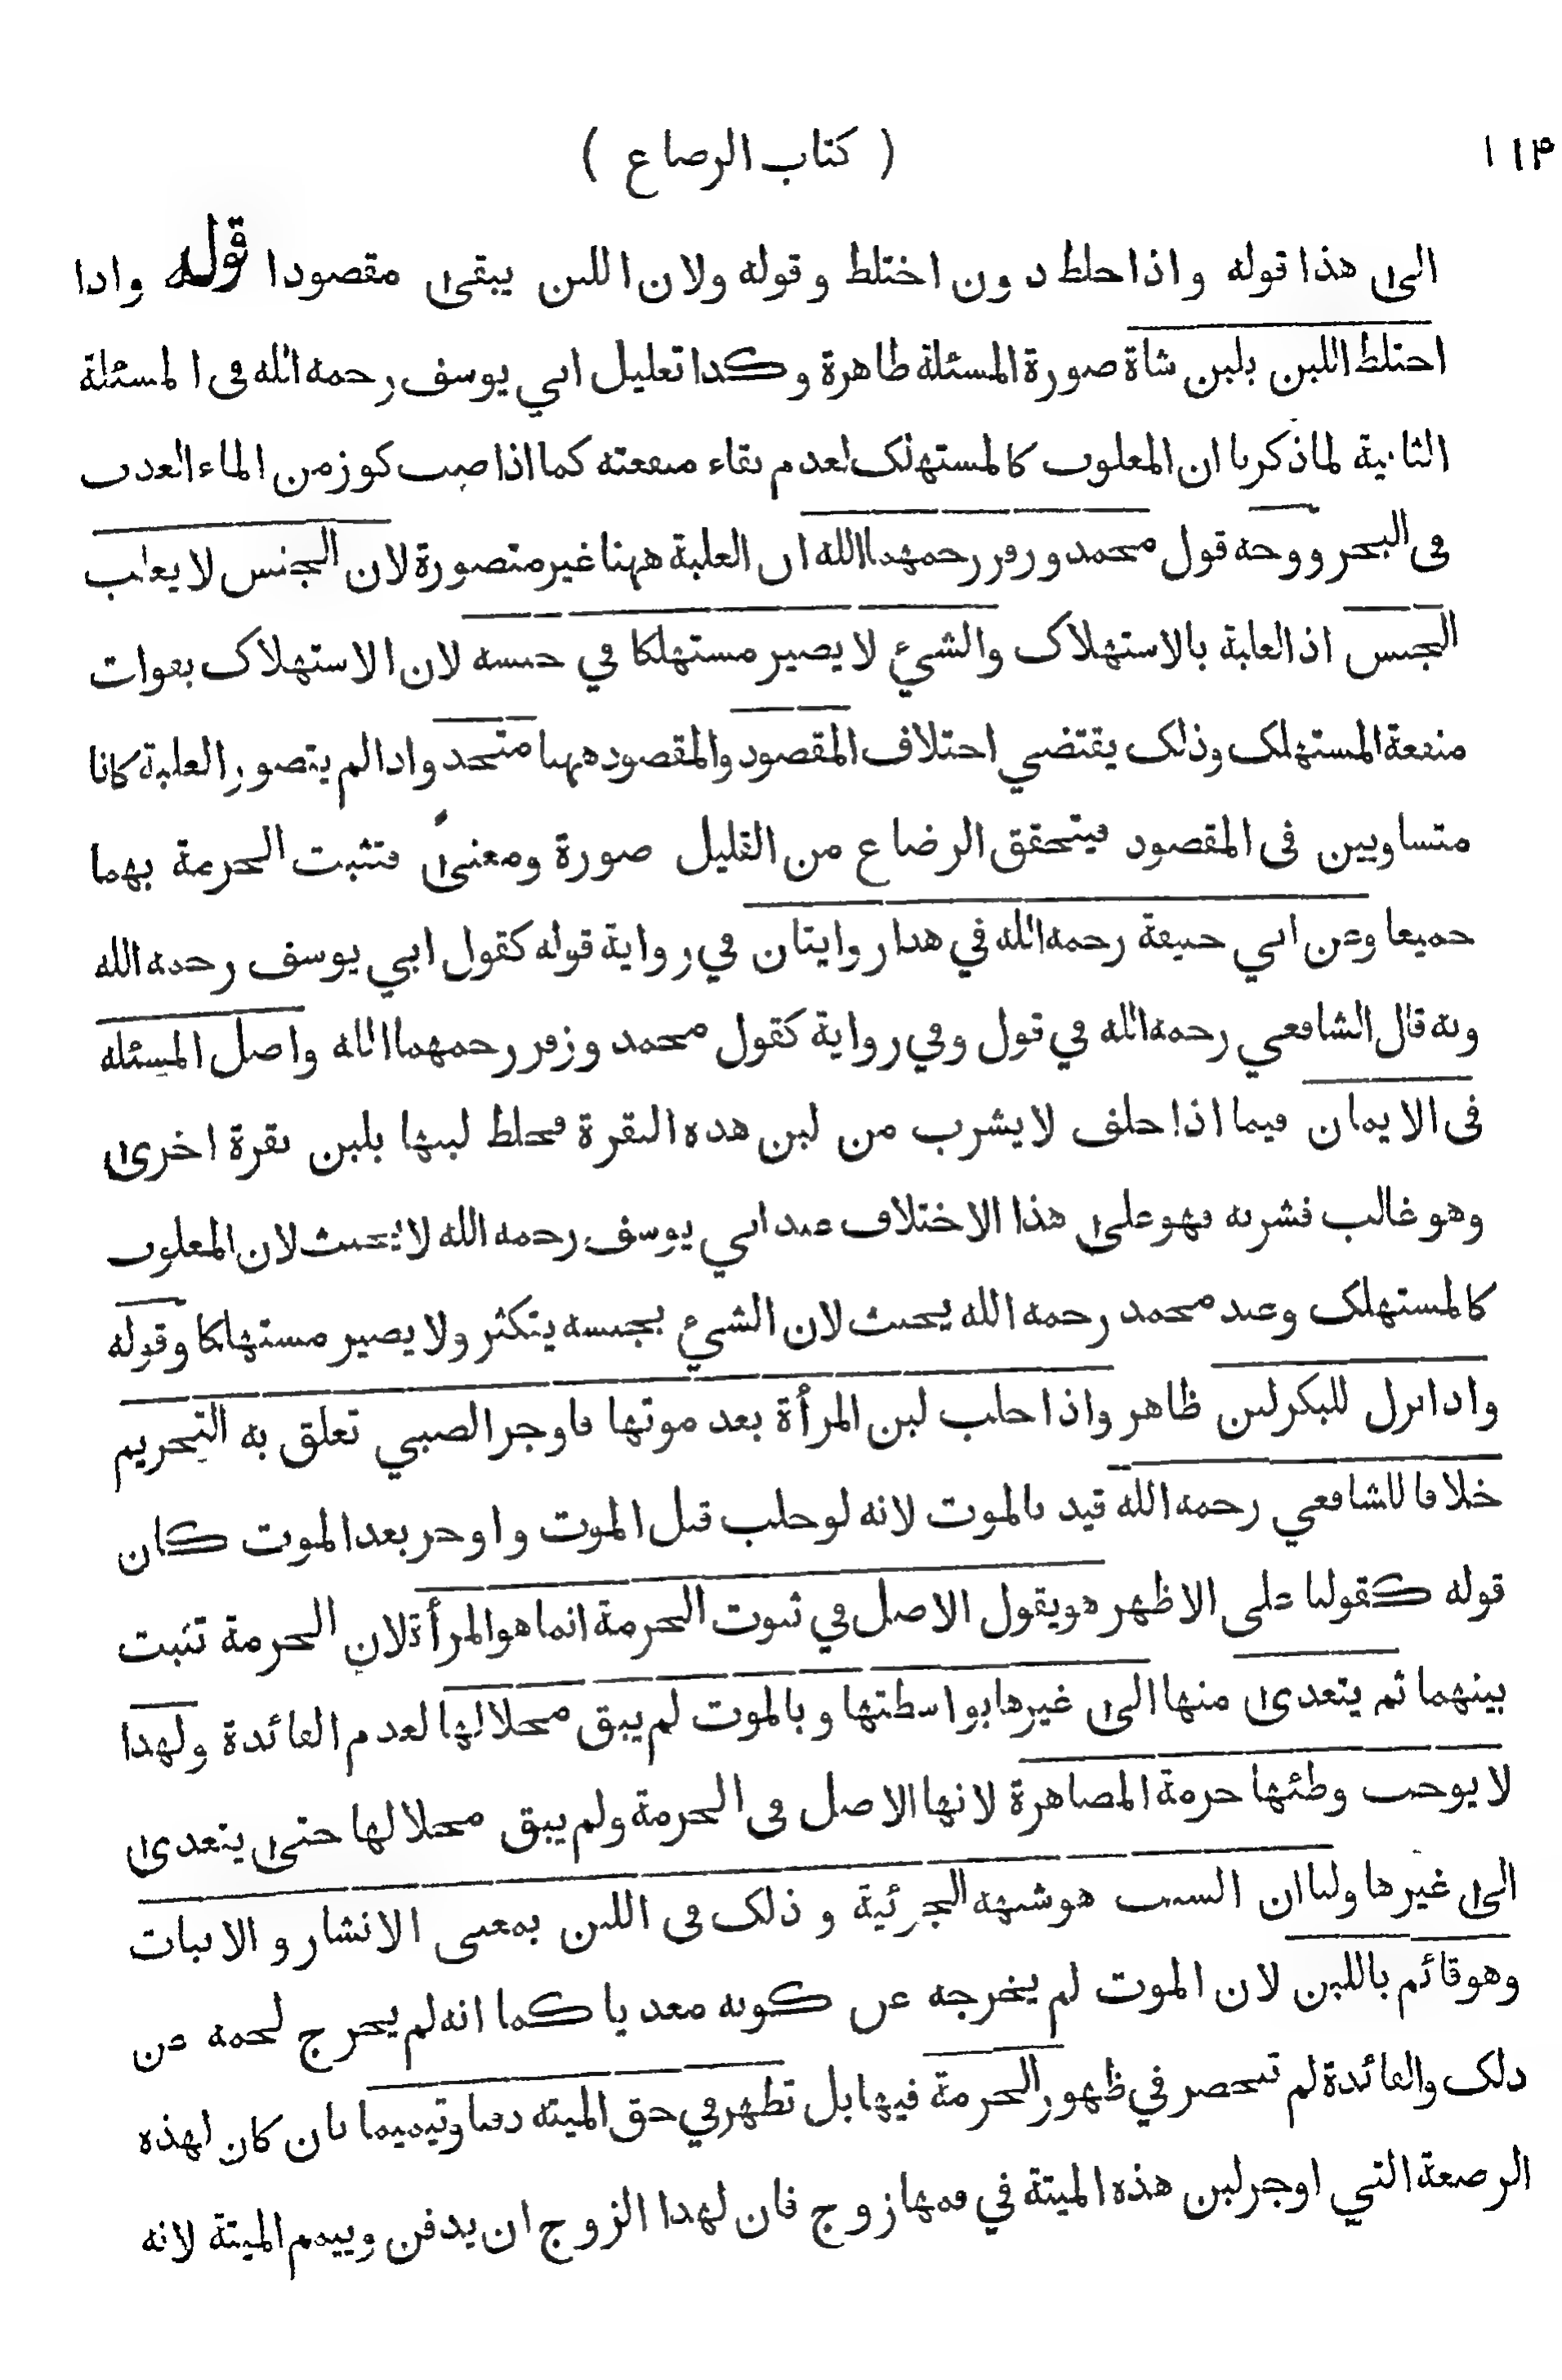 ١١٣
( كتاب الرضاع )
الى هذا قوله واذا خلط دون اختلط وقوله ولان اللبن يبقى مقصودا قوله واذا
اختلط اللبن بلبن شاة صورة المسئلة ظاهرة وكذا تعليل ابي يوسف رحمه الله في المسئلة
الثانية لما ذكرنا ان المغلوب كالمستهلك لعدم بقاء منفعته كما اذا صب كوز من الماء العذب
في البحر ووجه قول محمد وزفر رحمهما الله ان الغلبة ههنا غير متصورة لان الجنس لا يغلب
الجنس اذ الغلبة بالاستهلاك والشيء لا يصير مستهلكا في جنسه لان الاستهلاك بفوات
منفعة المستهلك وذلك يقتضي اختلاف المقصود والمقصود ههنا متحد واذا لم يتصور الغلبة كانا
متساويين في المقصود فيتحقق الرضاع من القليل صورة ومعنى فتثبت الحرمة بهما
جميعا وعن ابي حنيفة رحمه الله في هذا روايتان في رواية قوله كقول ابي يوسف رحمه الله
وبه قال الشافعي رحمه الله في قول وفي رواية كقول محمد وزفر رحمهما الله واصل المسئلة
في الايمان فيما اذا حلف لا يشرب من لبن هذه البقرة فخلط لبنها بلبن بقرة اخرى
وهو غالب فشربه فهو على هذا الاختلاف عند ابي يوسف رحمه الله لا يحنث لان المغلوب
كالمستهلك وعند محمد رحمه الله يحنث لان الشيء بجنسه يتكثر ولا يصير مستهلكا وقوله
واذا نزل للبكر لبن ظاهر واذا حلب لبن المرأة بعد موتها فاوجر الصبي تعلق به التحريم
خلافا للشافعي رحمه الله قيد بالموت لانه لو حلب قبل الموت واوجر بعد الموت كان
قوله كقولنا على الاظهر هو يقول الاصل في ثبوت الحرمة انما هو المرأة لان الحرمة تثبت
بينهما ثم يتعدى منها الى غيرها بواسطتها وبالموت لم يبق محلا لها لعدم الفائدة ولهذا
لا يوجب وطئها حرمة المصاهرة لانها الاصل في الحرمة ولم يبق محلا لها حتى يتعدى
الى غيرها ولنا ان السبب هو شبهه الجزئية وذلك في اللبن بمعنى الانشار والانبات
وهو قائم باللبن لان الموت لم يخرجه عن كونه مغذيا كما انه لم يخرج لحمه عن
ذلك والفائدة لم تنحصر في ظهور الحرمة فيها بل تظهر في حق الميته دفنا وتيميما بان كان لهذه
الرضعة التي اوجر لبن هذه الميتة في فمها زوج فان لهذا الزوج ان يدفن وييمم الميتة لانه